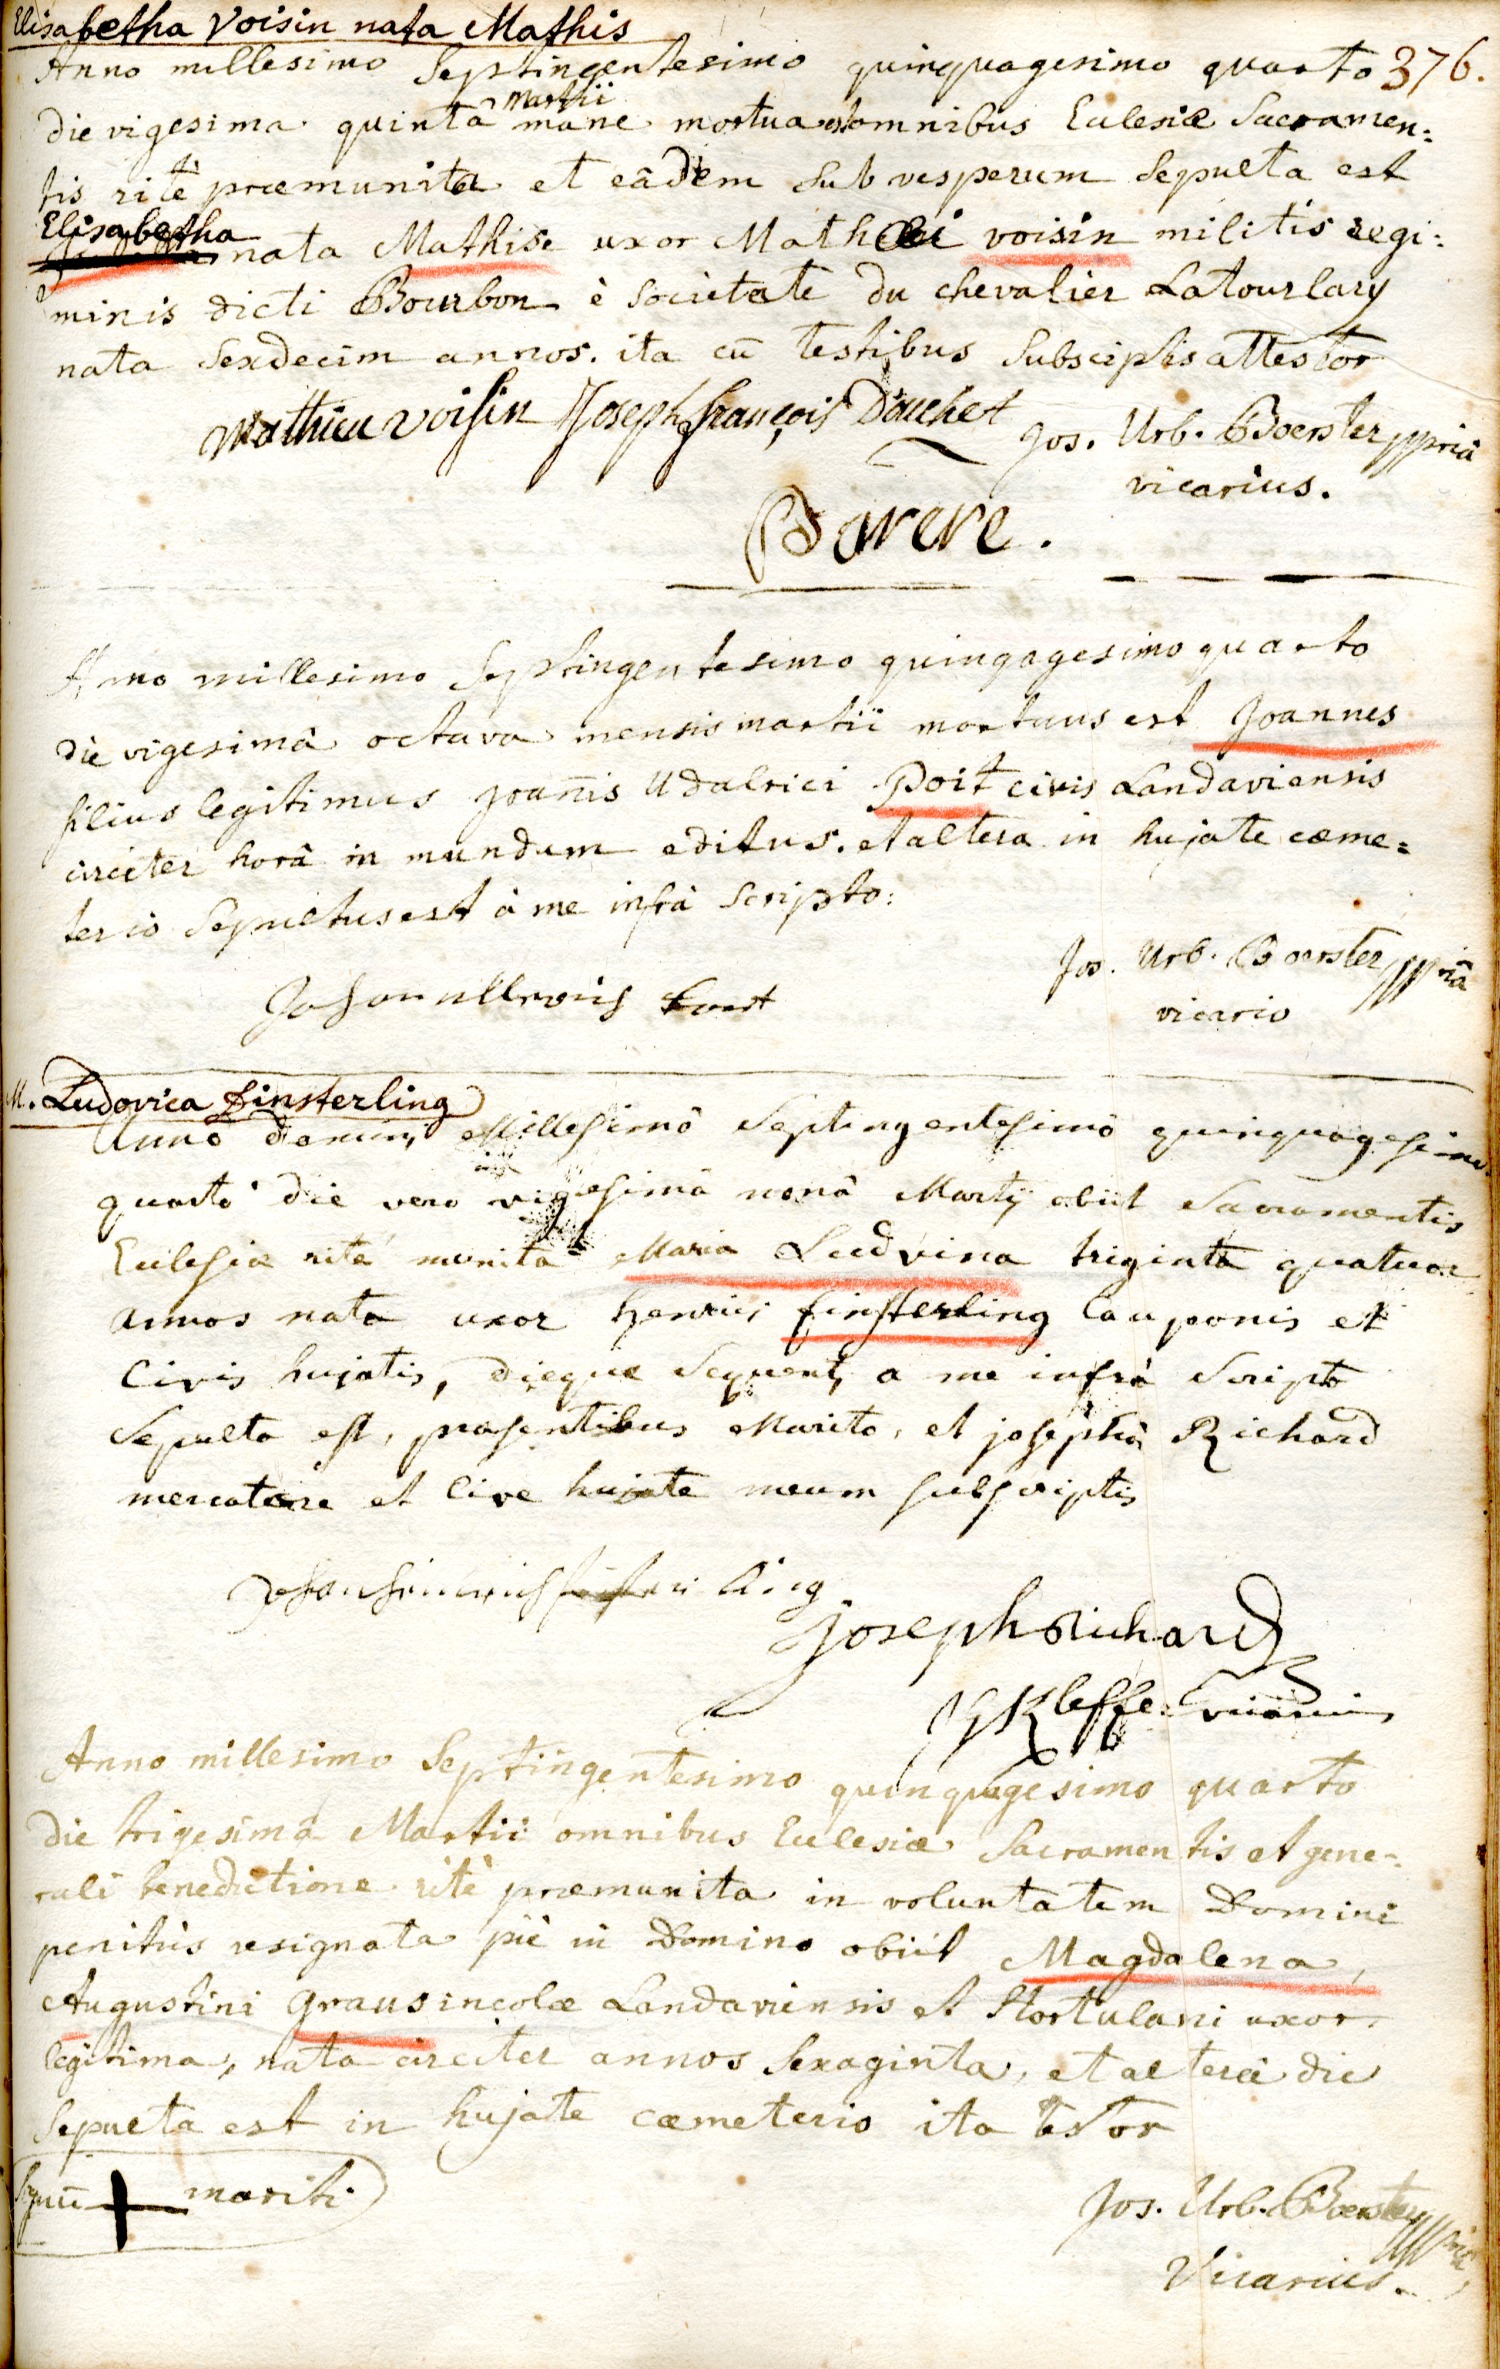 Elisabetha Voisin nata Mathis
Anno millesimo Septingentesimo quinquagesimo quarto 376.
Martii
die vigesima quinta mane mortua est omnibus Eclesiæ Sacramen:
tis ritè præmunita et eâdem sub vesperum Sepulta est
Elisabetha
nata Mathise uxor Mathæi voisin militis regi:
minis dicti Bourbon è Societate du chevalier Latourlary
nata Sexdecim annos. ita cū testibus Subsciptis attestor
Mathieu voisin Joseph françois Dauchet
Jos. Urb. Boerster ppriâ
vicarius.
Barere.
Anno millesimo Septingentesimo quinqagesimo quarto
die vigesimâ octava mensis martii mortuus est Joannes
filius legitimus joan̄is Udalrici Poit civis Landaviensis
circiter horâ in mundum editus. et altera in hujate cæme=
terio Sepultus est à me infrà Scripto:
Jos. Urb. Boerster ppriâ
vicario
M. Ludovica Finsterling
Anno Domini Millesimô Septingentesimô quinquagesimo
quarto die vero vigesimâ nonâ Martÿ obiit Sacramentis
Eclesiæ rite munita Maria Ludvina triginta quatuor
annos nata uxor Henrici finsterling Cauponis et
Civis hujatis, dieque Sequenti a me infrà Scripto
Sepulta est, præsentibus Marito, et josepho Richard
mercatore et Cive hujate mecum subscriptis
joseph Richard
JG Kleffer vicarius
Anno millesimo Septingentesimo quinquagesimo quarto
die trigesimâ Martii omnibus Eclesiæ Sacramentis et gene-
rali benedictione ritè præmunita in voluntatem Domini
penitùs resignata piè in Domino obiit Magdalena,
Augustini Graus incolæ Landaviensis et Hortulani uxor
legitima, nata circiter annos Sexaginta, et alterâ die
Sepulta est in hujate cæmeterio ita testor
signū + mariti
Jos. Urb. Boerster ppriâ
Vicarius.